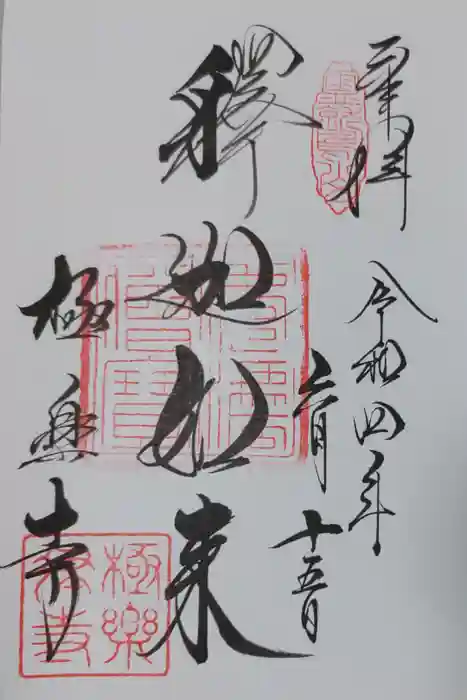 奉拝
令和四年
六月
十五日
釈迦如来
極楽寺
極樂寺